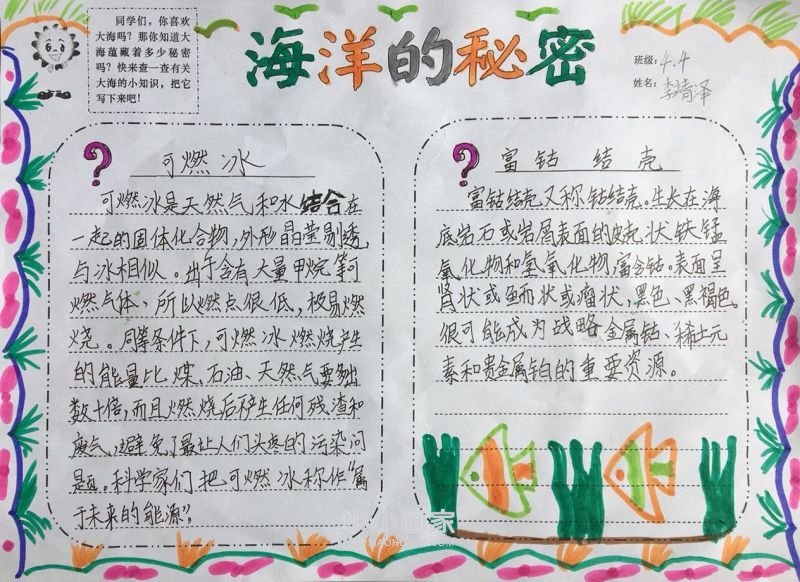 同学们，你喜欢
大海吗？那你知道大
海蕴藏着多少秘密
吗？快来查一查有关
大海的小知识，把它
写下来吧！
海洋的秘密
班级：4.4
姓名：李清泽
? 可燃冰
可燃冰是天然气和水结合在
一起的固体化合物，外形晶莹剔透
与冰相似。由于含有大量甲烷等可
燃气体、所以燃点很低，极易燃
烧。同等条件下，可燃冰燃烧产生
的能量比煤、石油、天然气要多出
数十倍，而且燃烧后不产生任何残渣和
废气，避免了最让人们头疼的污染问
题。科学家们把可燃冰称作“属
于未来的能源”。
? 富钴结壳
富钴结壳又称钴结壳。生长在海
底岩石或岩屑表面的皮壳状铁锰
氧化物和氢氧化物，富含钴。表面呈
肾状或鲕状或瘤状，黑色、黑褐色。
很可能成为战略金属钴、稀土元
素和贵金属铂的重要资源。
小小画家